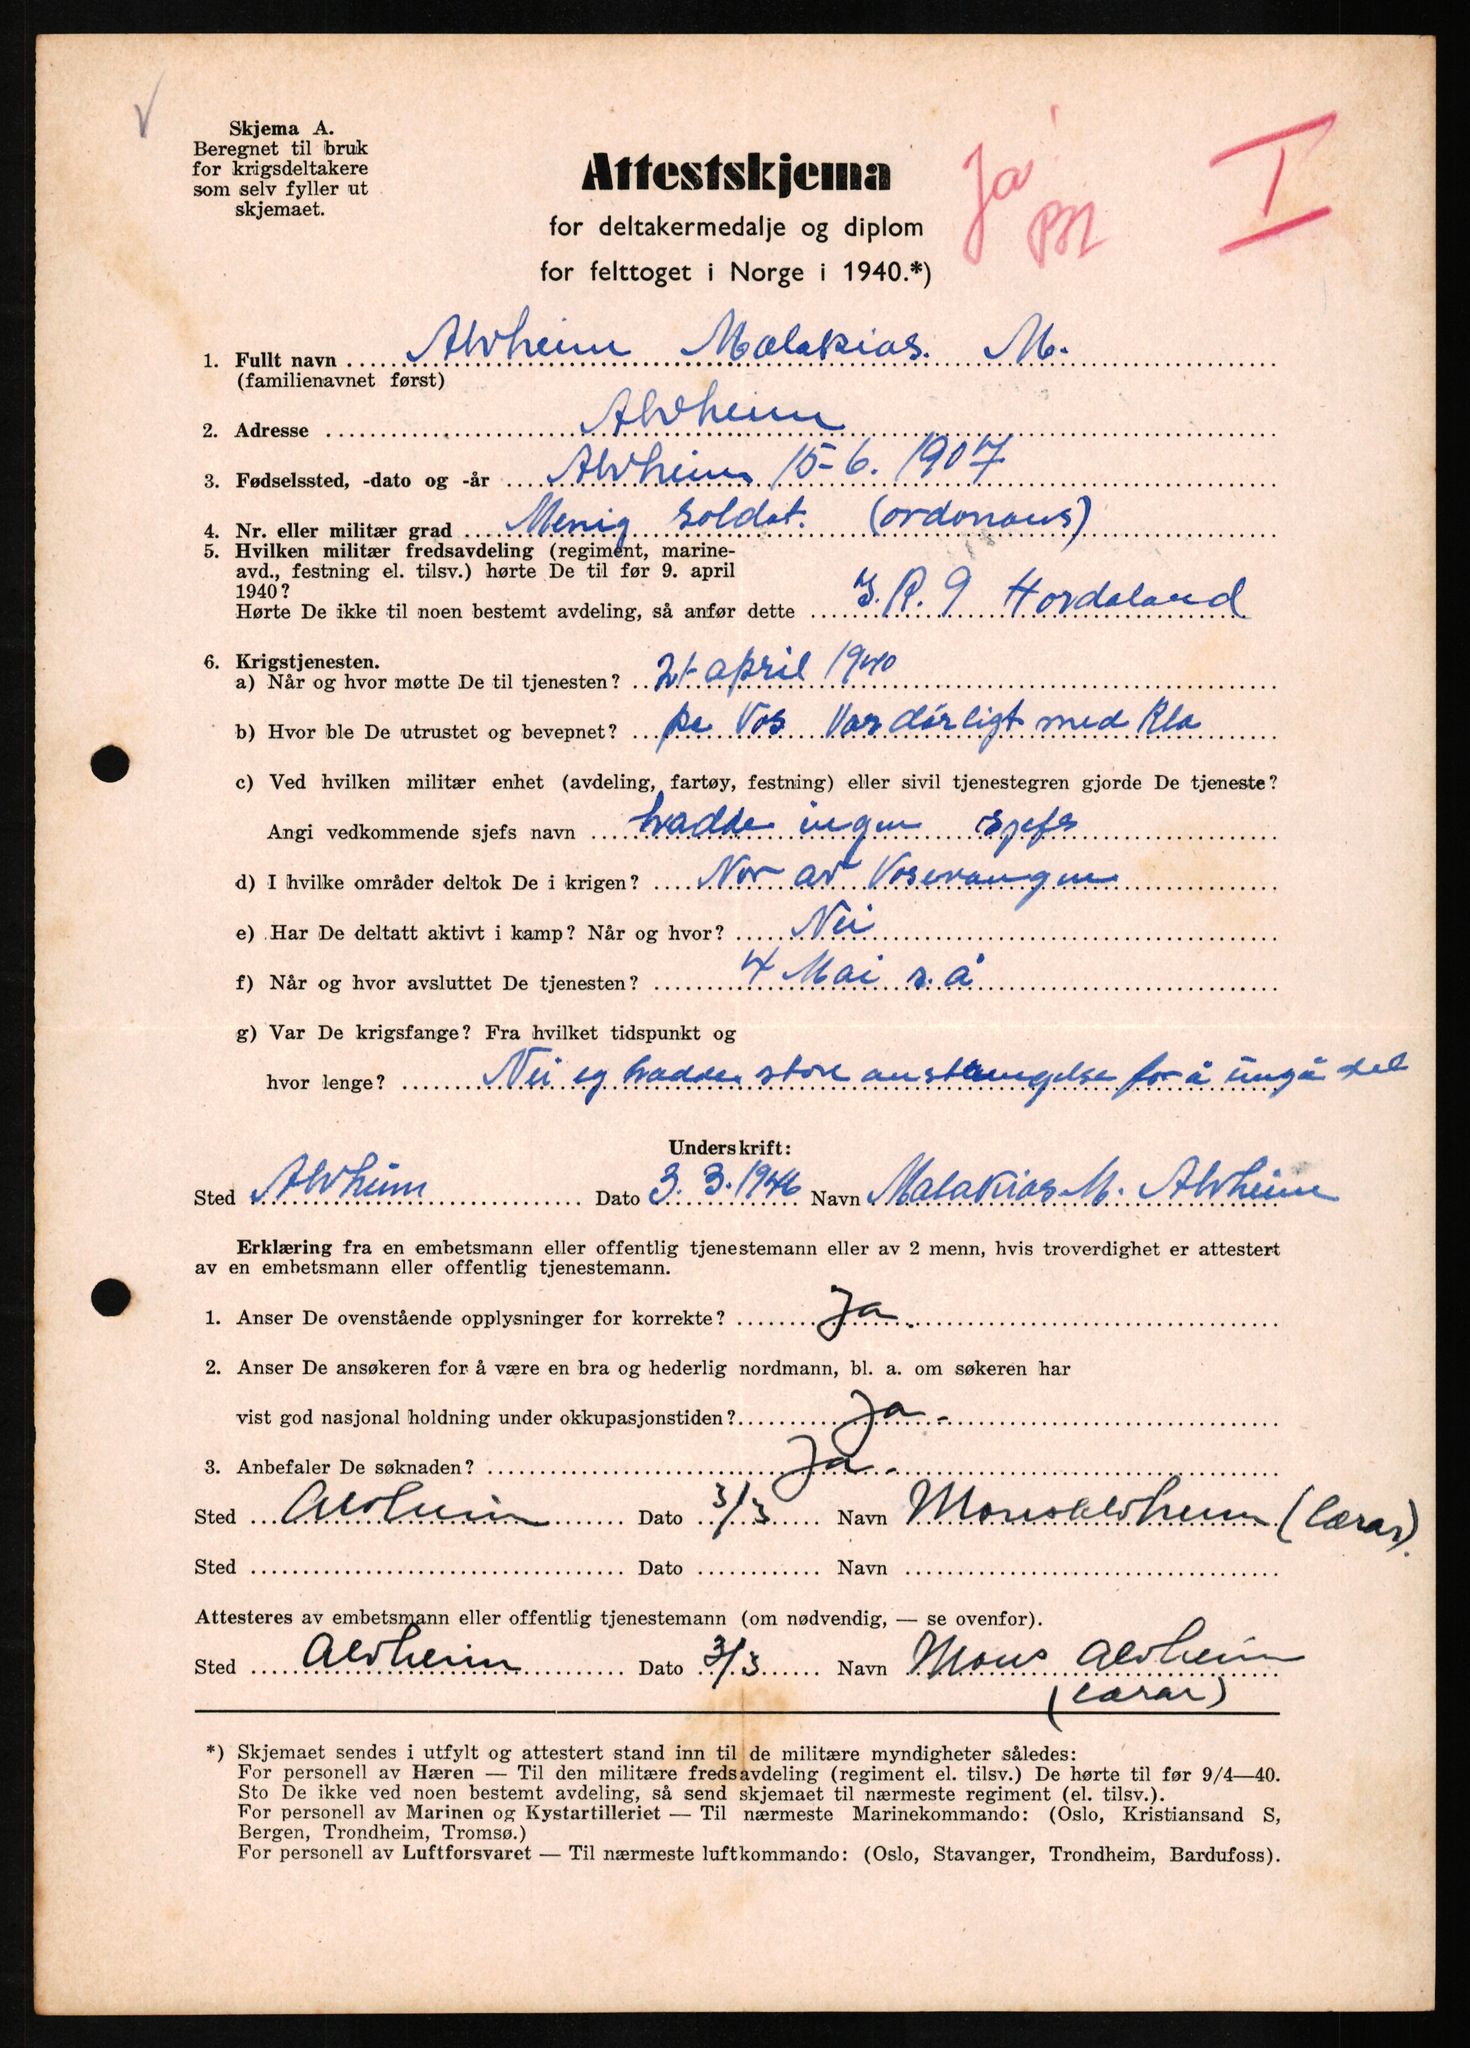 Skjema A.
Beregnet til bruk
for krigsdeltakere
som selv fyller ut
skjemaet.
Attestskjema
for deltakermedalje og diplom
for felttoget i Norge i 1940.*)
Ja
I
1. Fullt navn Alvheim Malakias. M.
(familienavnet først)
2. Adresse Alvheim
3. Fødselssted, -dato og -år Alvheim 15-6. 1907
4. Nr. eller militær grad Menig soldat. (ordonans)
5. Hvilken militær fredsavdeling (regiment, marine-
avd., festning el. tilsv.) hørte De til før 9. april
1940?
Hørte De ikke til noen bestemt avdeling, så anfør dette I.R. 9 Hordaland
6. Krigstjenesten.
a) Når og hvor møtte De til tjenesten? april 1940
b) Hvor ble De utrustet og bevepnet? pa Vos Var dårligt med Kla
c) Ved hvilken militær enhet (avdeling, fartøy, festning) eller sivil tjenestegren gjorde De tjeneste?
Angi vedkommende sjefs navn hadde ingen sjefs
d) I hvilke områder deltok De i krigen? Nor av Vosevangen
e) Har De deltatt aktivt i kamp? Når og hvor? Nei
f) Når og hvor avsluttet De tjenesten? 4 Mai s.å
g) Var De krigsfange? Fra hvilket tidspunkt og
hvor lenge? Nei eg hadde store anstrengelse for å ungå del
Underskrift:
Sted Alvheim Dato 3. 3. 1946 Navn Malakias M. Alvheim
Erklæring fra en embetsmann eller offentlig tjenestemann eller av 2 menn, hvis troverdighet er attestert
av en embetsmann eller offentlig tjenestemann.
1. Anser De ovenstående opplysninger for korrekte? Ja.
2. Anser De ansøkeren for å være en bra og hederlig nordmann, bl. a. om søkeren har
vist god nasjonal holdning under okkupasjonstiden? Ja-
3. Anbefaler De søknaden? Ja-
Sted Alvheim Dato 3/3 Navn Mons Alvheim (Lærar).
Sted Dato Navn
Attesteres av embetsmann eller offentlig tjenestemann (om nødvendig, — se ovenfor).
Sted Alvheim Dato 3/3 Navn Mons Alvheim
(Lærar)
*) Skjemaet sendes i utfylt og attestert stand inn til de militære myndigheter således:
For personell av Hæren — Til den militære fredsavdeling (regiment el. tilsv.) De hørte til før 9/4—40.
Sto De ikke ved noen bestemt avdeling, så send skjemaet til nærmeste regiment (el. tilsv.).
For personell av Marinen og Kystartilleriet — Til nærmeste Marinekommando: (Oslo, Kristiansand S,
Bergen, Trondheim, Tromsø.)
For personell av Luftforsvaret — Til nærmeste luftkommando: (Oslo, Stavanger, Trondheim, Bardufoss).